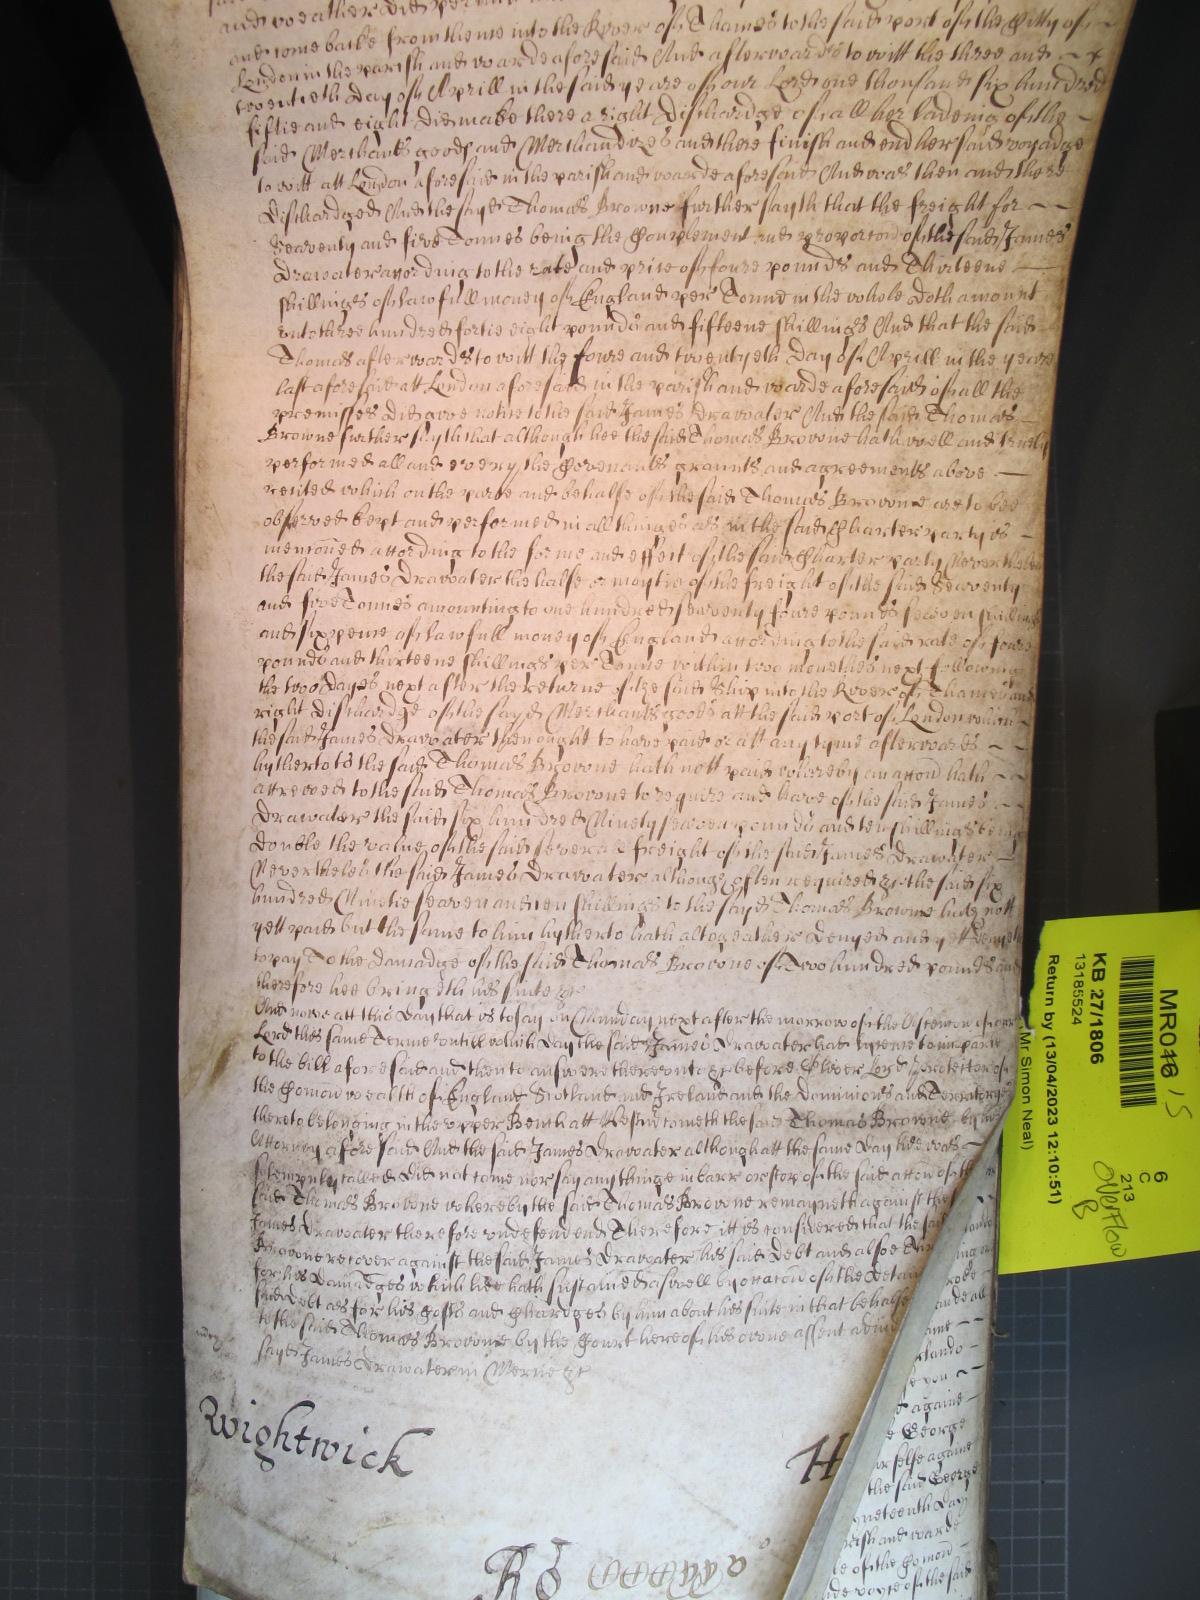 and come backe from thence into the River of Thames to the said port of the Citty of
London in the parish and warde aforesaid And afterwards to witt the three and
twentieth day of Aprill in the said yeare of our Lord one thousand six hundred
fiftie and eight did make there a right dischardge of all her ladeing of the
said Merchants goods and Merchandizes and there finish and end her said voyadge
to witt att London aforesaid in the parish and warde aforesaid And was then and there
dischardged And the sayd Thomas Browne further sayth that the freight for
Seaventy and five Tonnes being the Complement and proporcon of the said James
Drawater according to the rate and price of foure pounds and Thirteene
shillinges of lawfull money of England per Tonne in the whole doth amount
unto three hundred fortie eight pounds and fifteene shillings And that the said
Thomas afterwards to witt the foure and twentyeth day of Aprill in the yeare
last aforesaid att London aforesaid in the parish and warde aforesaid of all the
premisses did give notice to the said James Drawater And the said Thomas
Browne further sayth that although hee the said Thomas Browne hath well and truely
performed all and every the Covenants graunts and agreements above
recited which on the parte and behalfe of the said Thomas Browne are to bee
observed kept and performed in all thinges as in the said Charter party is
menconed according to the forme and effect of the said Charter party Neverthelesse
the said James Drawater the halfe or moytie of the freight of the said Seaventy
and five Tonnes amounting to one hundred seaventy foure pounds seaven shillings
and sixpence of lawfull money of England according to the said rate of foure
pounds and thirteene shillings per Tonne within two monethes next following
the two dayes next after the returne of the said Ship into the River of Thames and
right dischardge of the sayd Merchants goods att the said port of London which
the said James Drawater then ought to have paid or att any tyme afterwards
hitherto to the said Thomas Browne hath nott paid whereby an accon hath
accrewed to the said Thomas Browne to require and have of the said James
Drawater the said six hundred Ninety seaven pounds and ten shillings being
double the value of the said severall freight of the said James Drawater
Neverthelesse the said James Drawater although often required &c the said six
hundred Ninetie seaven and ten shillings to the sayd Thomas Browne hath nott
yett paid but the same to him hytherto hath altogeather denyed and yett
to pay To the damadge of the said Thomas Browne of Two hundred pounds and
therefore hee bringeth his suite &c
And nowe att this day that is to say on Munday next after the morrow of the Ascencon of our
Lord this same Terme untill which day the said James Drawater had lycence to imparle
to the bill aforesaid and then to answere thereunto &c before Oliver Lord Protector of
the Comonwealth of England Scotland and Ireland and the dominions and Terratoryes
thereto belonging in the upper Bench att Westm cometh the said Thomas Browne by his
Attorney aforesaid And the said James Drawater although att the same day hee was
solempnly called did not come nor say any thinge in barr or stop of the said accon of the
said Thomas Browne whereby the said Thomas Browne remayneth against the
James Drawater therefore undefended Therefore itt is considered that the said
Browne recover against the said James Drawater his said debt and alsoe
for his damadges which hee hath susteined aswell by occacon of the
said debt as for his Costs and Chardges by him about his suite in that behalfe
to the said Thomas Browne by the Court here of his owne assent
sayd James Drawater in Mercie &c
Wightwick
H
KB 27/1806
13185524
Return by (13/04/2023 12:10:51)
Mr Simon Neal)
MR046
15
6
C
213
Overflow
B
ame
e you
againe
George
selfe againe
the said George
nyneteenth day
parish and warde
of the Comon
of the said